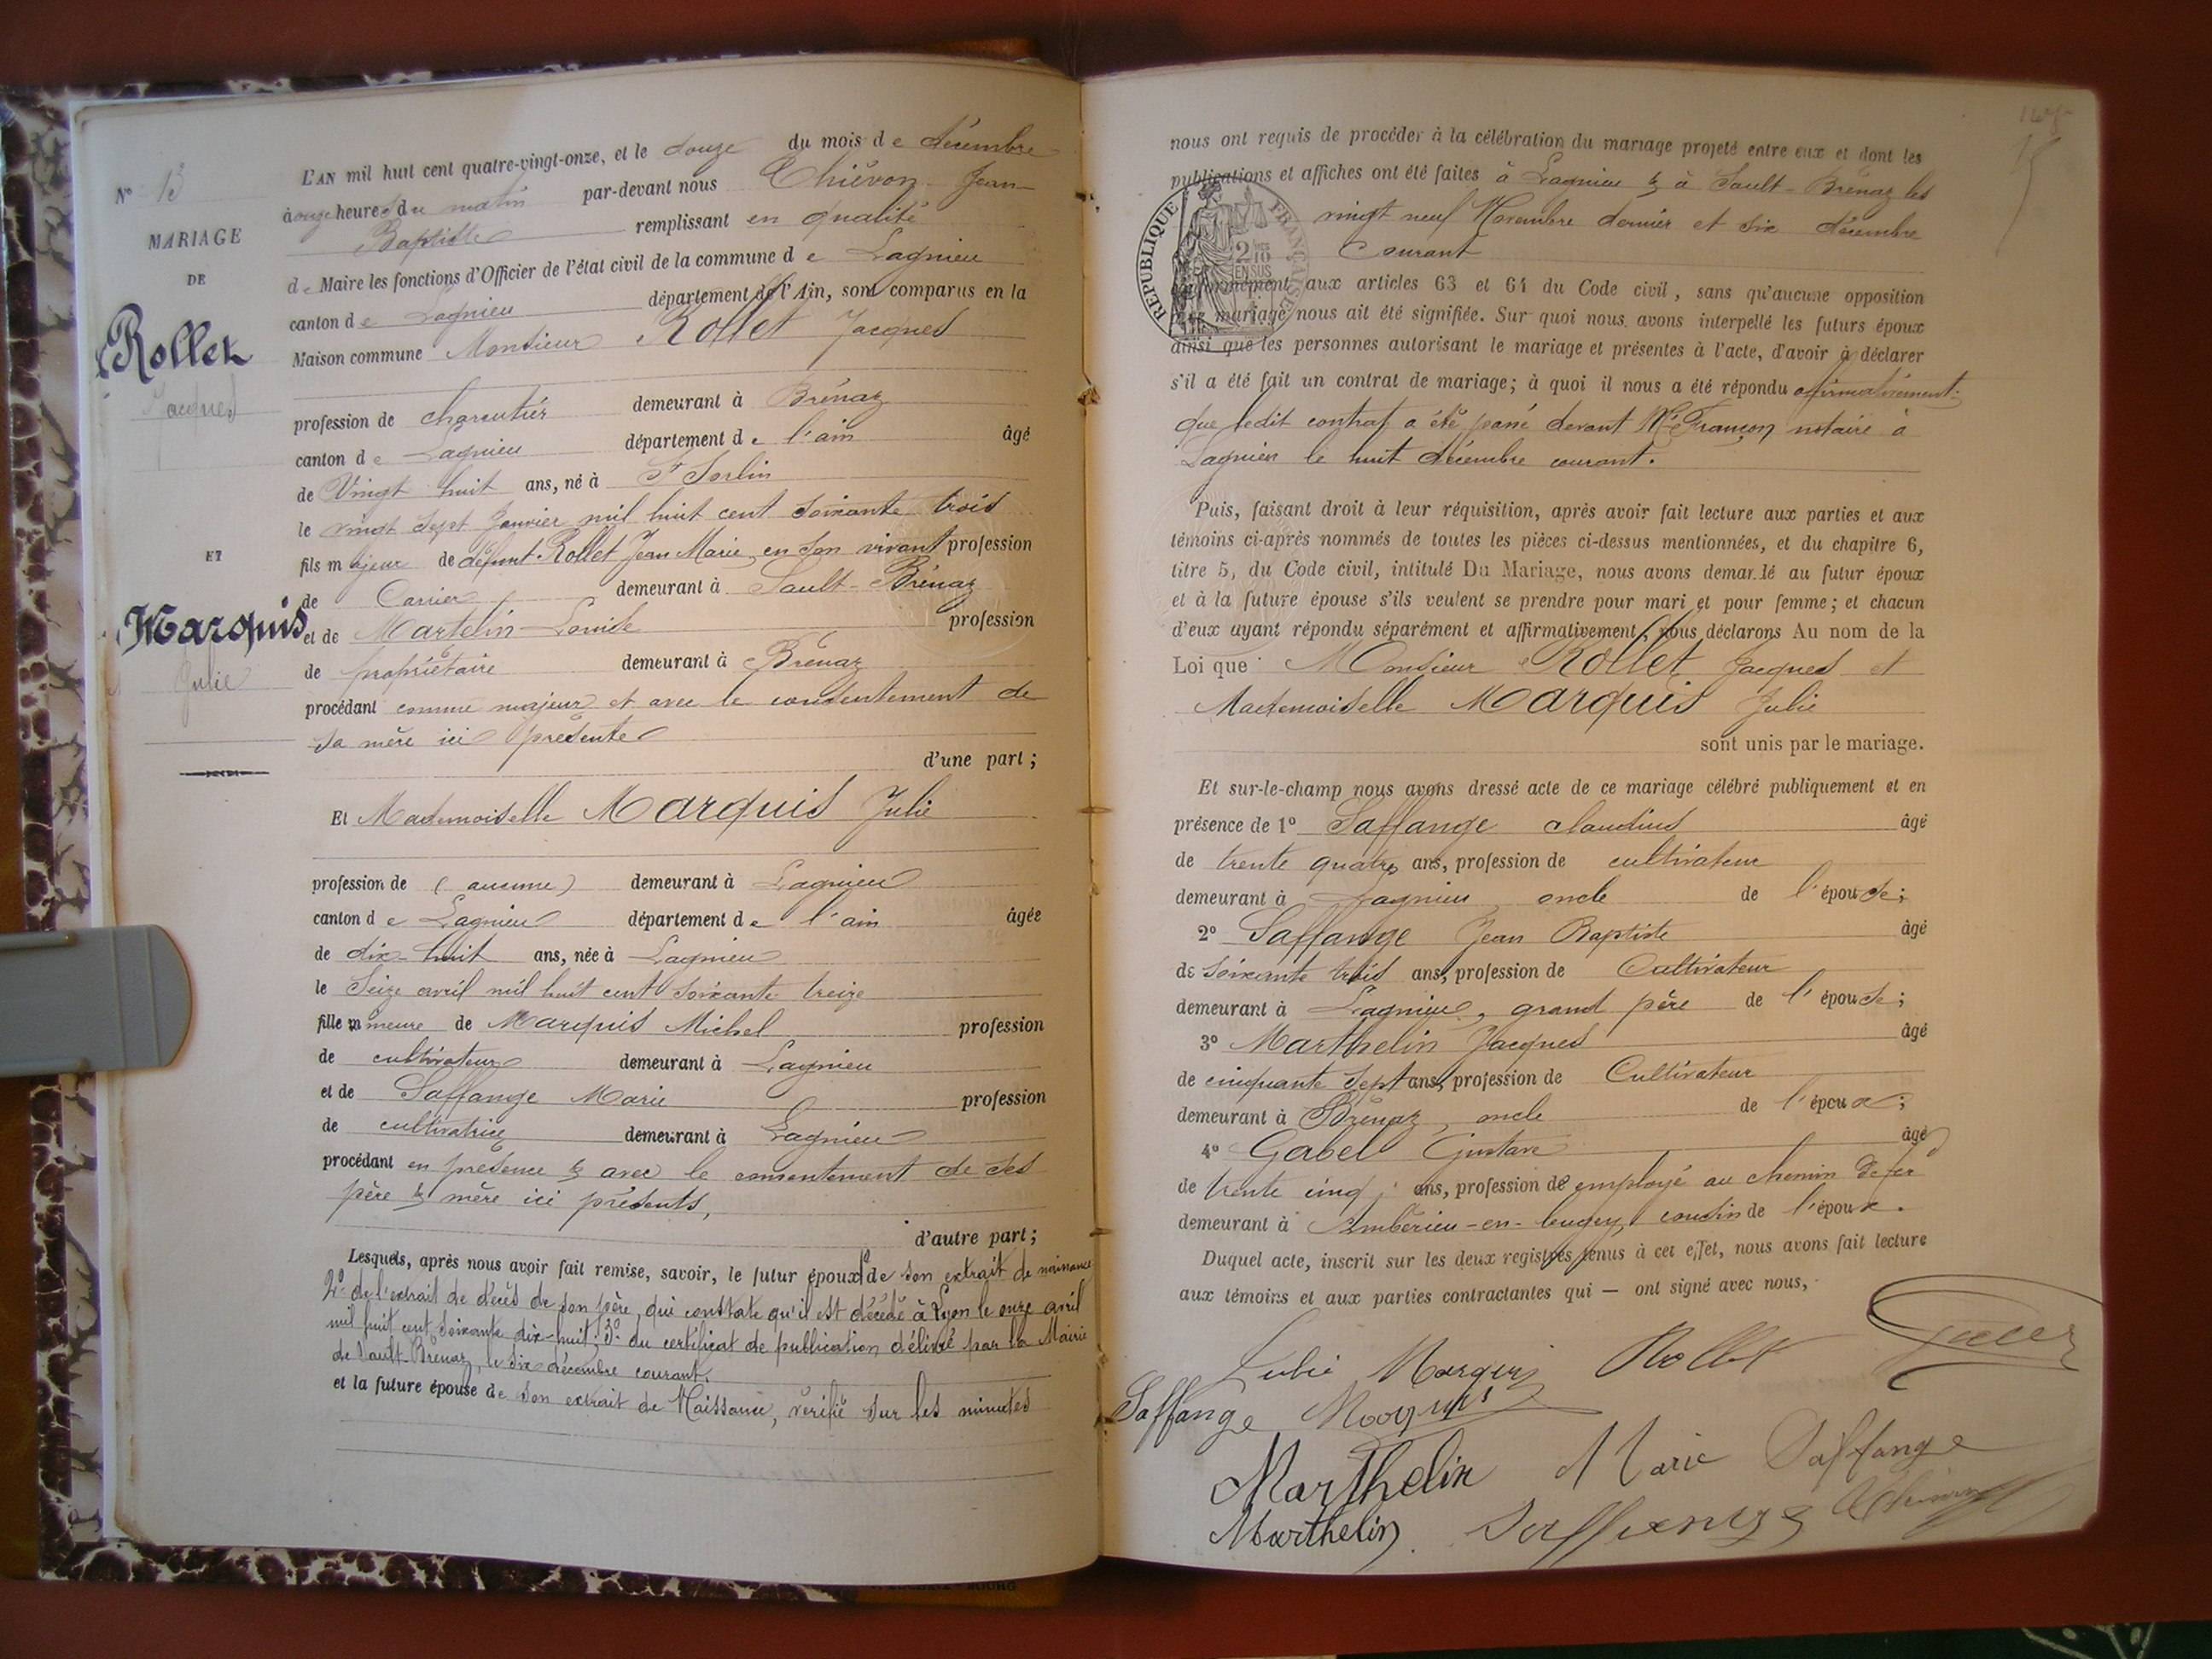 N° 13
MARIAGE
DE
Rollet
Jacques
ET
Marquis
Julie
L'AN mil huit cent quatre-vingt-onze, et le douze du mois de décembre
à onze heures du matin par-devant nous Chiévon Jean
Baptiste remplissant en qualité
de Maire les fonctions d'Officier de l'état civil de la commune de Lagnieu
canton de Lagnieu département de l'Ain, sont comparus en la
Maison commune Monsieur Rollet Jacques
profession de charcutier demeurant à Brénaz
canton de Lagnieu département de l'ain âgé
de Vingt huit ans, né à St Sorlin
le vingt sept Janvier mil huit cent soixante trois
fils majeur de défunt Rollet Jean Marie, en son vivant profession
de Carrier demeurant à Sault-Brénaz
et de Martelin Louise profession
de propriétaire demeurant à Brénaz
procédant comme majeur et avec le consentement de
sa mère ici présente
d'une part;
Et Mademoiselle Marquis Julie
profession de (aucune) demeurant à Lagnieu
canton de Lagnieu département de l'ain âgée
de dix-huit ans, née à Lagnieu
le Seize avril mil huit cent soixante treize
fille mineure de Marquis Michel profession
de cultivateur demeurant à Lagnieu
et de Saffange Marie profession
de cultivatrice demeurant à Lagnieu
procédant en présence & avec le consentement de ses
père & mère ici présents,
d'autre part;
Lesquels, après nous avoir fait remise, savoir, le futur époux 1° de son extrait de naissance
2° de l'extrait de décès de son père, qui constate qu'il est décédé à Lyon le onze avril
mil huit cent soixante dix-huit; 3° du certificat de publication délivré par la Mairie
de Sault-Brénaz, le six décembre courant.
et la future épouse de son extrait de Naissance, vérifié sur les minutes
nous ont requis de procéder à la célébration du mariage projeté entre eux et dont les
publications et affiches ont été faites à Lagnieu & à Sault-Brénaz les
vingt neuf Novembre dernier et six décembre
Courant
RÉPUBLIQUE FRANÇAISE
2/10 EN SUS
conformément aux articles 63 et 64 du Code civil, sans qu'aucune opposition
mariage nous ait été signifiée. Sur quoi nous avons interpellé les futurs époux
ainsi que les personnes autorisant le mariage et présentes à l'acte, d'avoir à déclarer
s'il a été fait un contrat de mariage; à quoi il nous a été répondu affirmativement.
que ledit contrat a été passé devant Me Françon notaire à
Lagnieu le huit décembre courant.
Puis, faisant droit à leur réquisition, après avoir fait lecture aux parties et aux
témoins ci-après nommés de toutes les pièces ci-dessus mentionnées, et du chapitre 6,
titre 5, du Code civil, intitulé Du Mariage, nous avons demandé au futur époux
et à la future épouse s'ils veulent se prendre pour mari et pour femme; et chacun
d'eux ayant répondu séparément et affirmativement, nous déclarons Au nom de la
Loi que Monsieur Rollet Jacques et
Mademoiselle Marquis Julie
sont unis par le mariage.
Et sur-le-champ nous avons dressé acte de ce mariage célébré publiquement et en
présence de 1° Saffange claudius âgé
de trente quatre ans, profession de cultivateur
demeurant à Lagnieu, oncle de l'épouse;
2° Saffange Jean Baptiste âgé
de soixante trois ans, profession de Cultivateur
demeurant à Lagnieu, grand père de l'épouse;
3° Marthelin Jacques âgé
de cinquante sept ans, profession de Cultivateur
demeurant à Brénaz, oncle de l'époux;
4° Gabel Gustave âgé
de trente cinq ans, profession de employé au chemin de fer
demeurant à Ambérieu-en-bugey, cousin de l'époux.
Duquel acte, inscrit sur les deux registres tenus à cet effet, nous avons fait lecture
aux témoins et aux parties contractantes qui — ont signé avec nous,
Julie Marquis Rollet
Saffange Marquis
Marthelin Marie Saffange
Marthelin Saffange